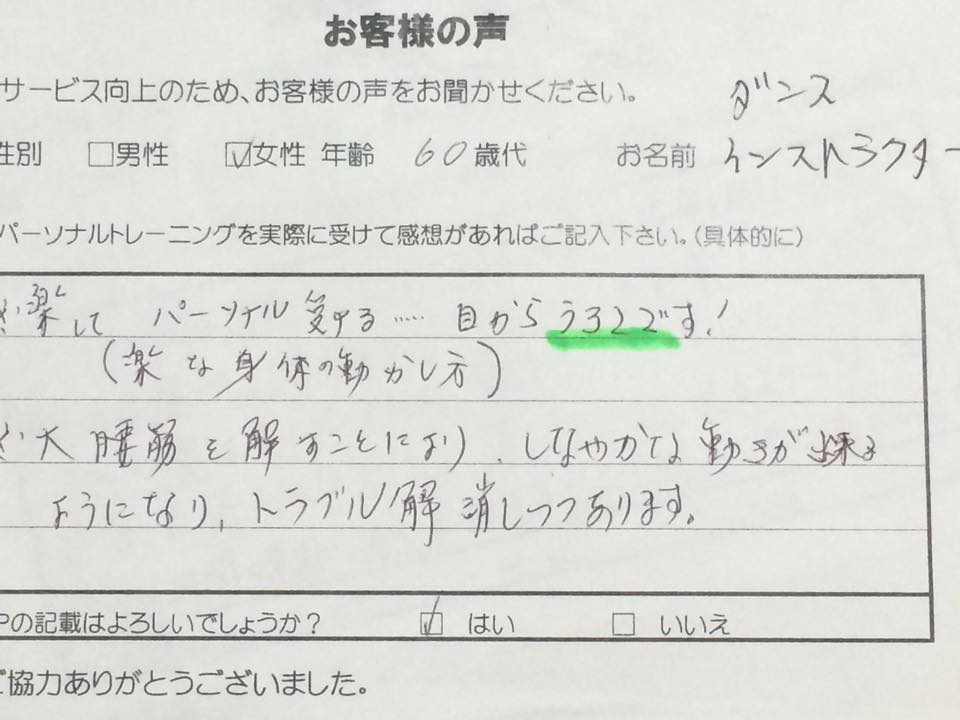 お客様の声
サービス向上のため、お客様の声をお聞かせください。 ダンス
性別 □男性 ☑女性 年齢 60歳代 お名前 インストラクター
パーソナルトレーニングを実際に受けて感想があればご記入下さい。(具体的に)
楽して パーソナル受する…… 目からうろこです!
(楽な身体の動かし方)
大腰筋を解すことにより、しなやかな動きが出来る
ようになり、トラブル解消しつつあります。
Pの記載はよろしいでしょうか? ☑ はい □ いいえ
ご協力ありがとうございました。